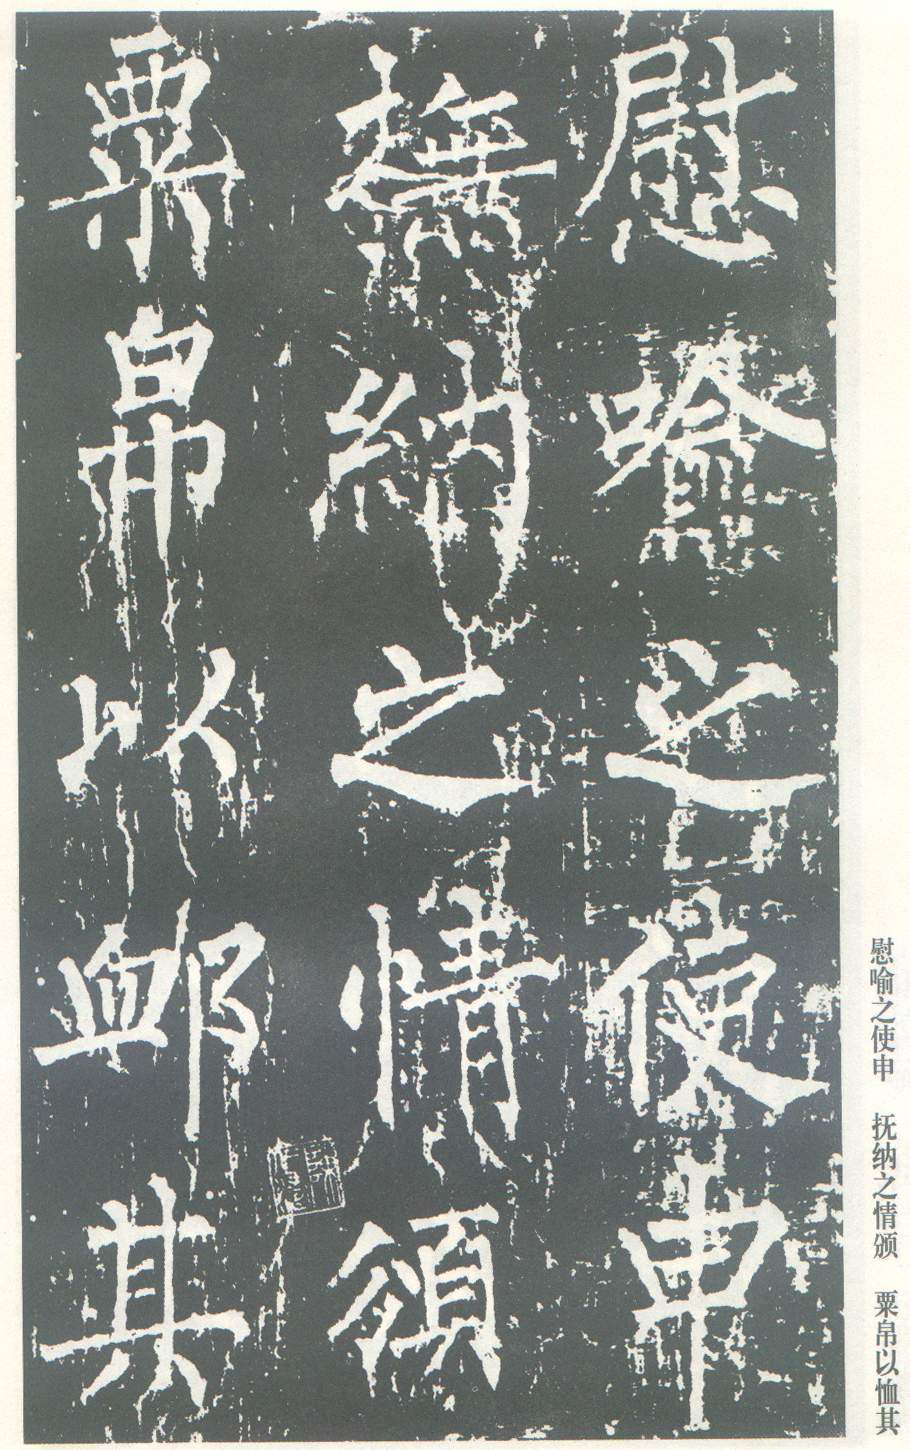 慰喻之使申
撫納之情頒
粟帛以䘏其
慰喻之使申　抚纳之情颁　粟帛以恤其